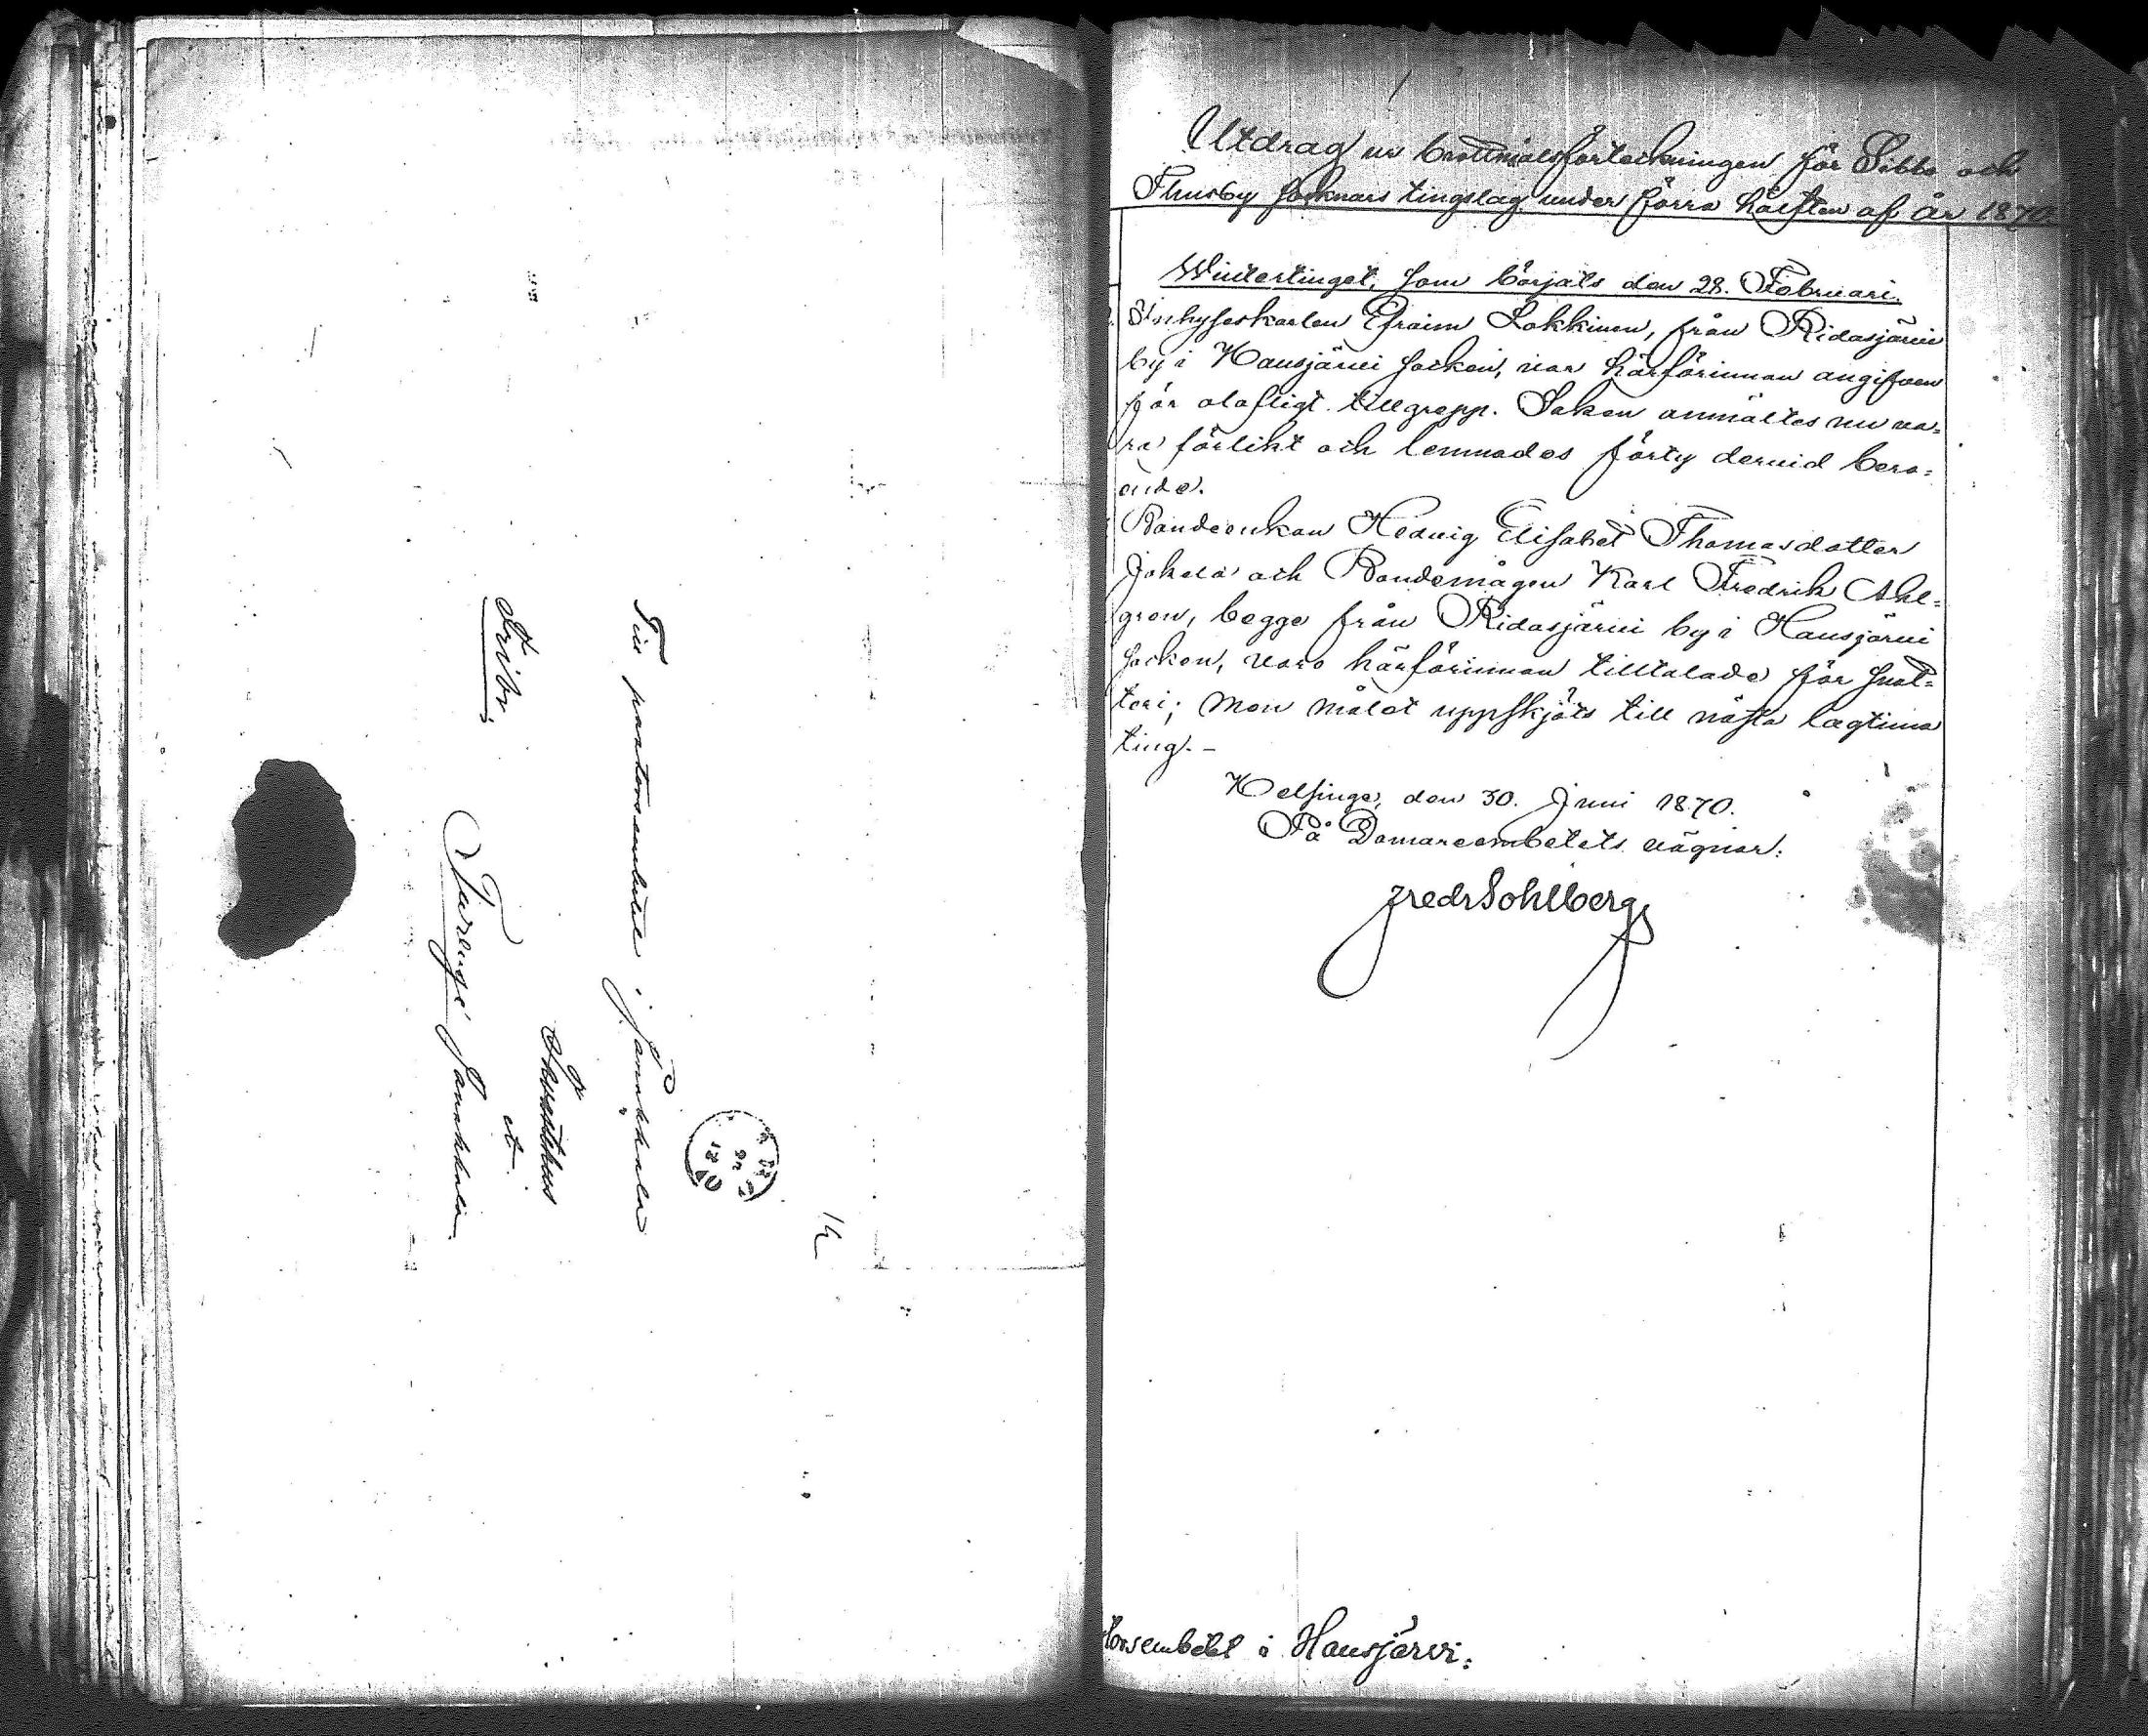 Till pastorsembetet i Janakkala
Skurathus
et
Fribr.
Turengi Janakkala
Utdrag ur brottmålsförteckningen för Sibbo och
Thusby socknars tingslag under förra hälften af år 1870.
Wintertinget, som börjats den 28. Februari.
Inhyseskarlen Efraim Lokkinen, från Ridasjärvi
by i Hausjärvi socken, var härförinnan angifven
för olofligt tillgrepp. Saken anmältes nu va=
ra förlikt och lemnades förty dervid bero=
ende.
Bondeenkan Hedvig Elisabet Thomasdotter
Jokela och Bondemågen Karl Fredrik Ahl=
gren, begge från Ridasjärvi by i Hausjärvi
socken, voro härförinnan tilltalade för snat=
teri; men målet uppskjöts till nästa lagtima
ting. –
Helsinge, den 30. Juni 1870.
På Domareembetets vägnar:
Fredr Sohlberg
torsembetet i Hausjärvi.